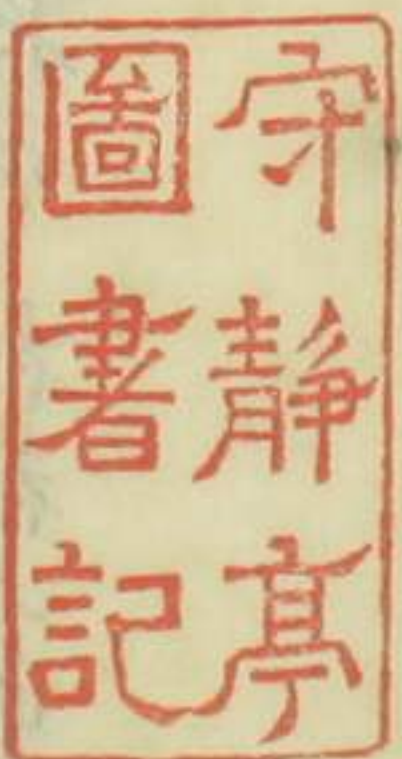 守靜亭
圖書記